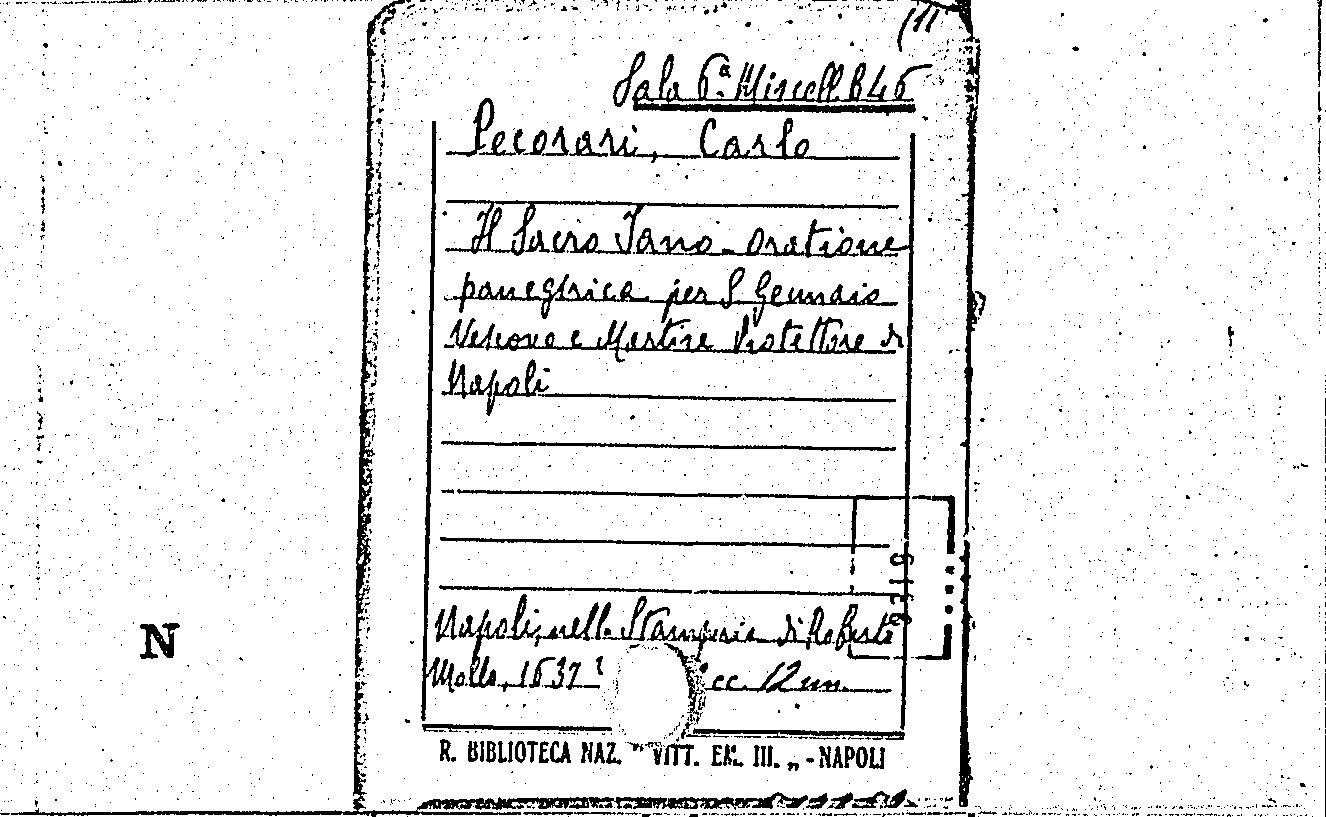 (11
Sala 6.ª Miscell. B46
Pecorari, Carlo
Il Sacro Jano - oratione
panegirica per S. Gennaio
Vescovo e Martire Protettore di
Napoli
Napoli, nella Stamperia di Roberto
Mollo, 1637 cc. 12 nn.
R. BIBLIOTECA NAZ. "VITT. EM. III. „ - NAPOLI
N